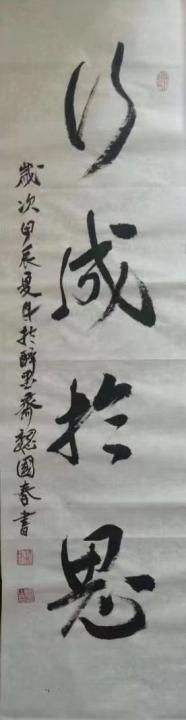 行成於思
歲次甲辰夏月於醉墨齋魏國春書